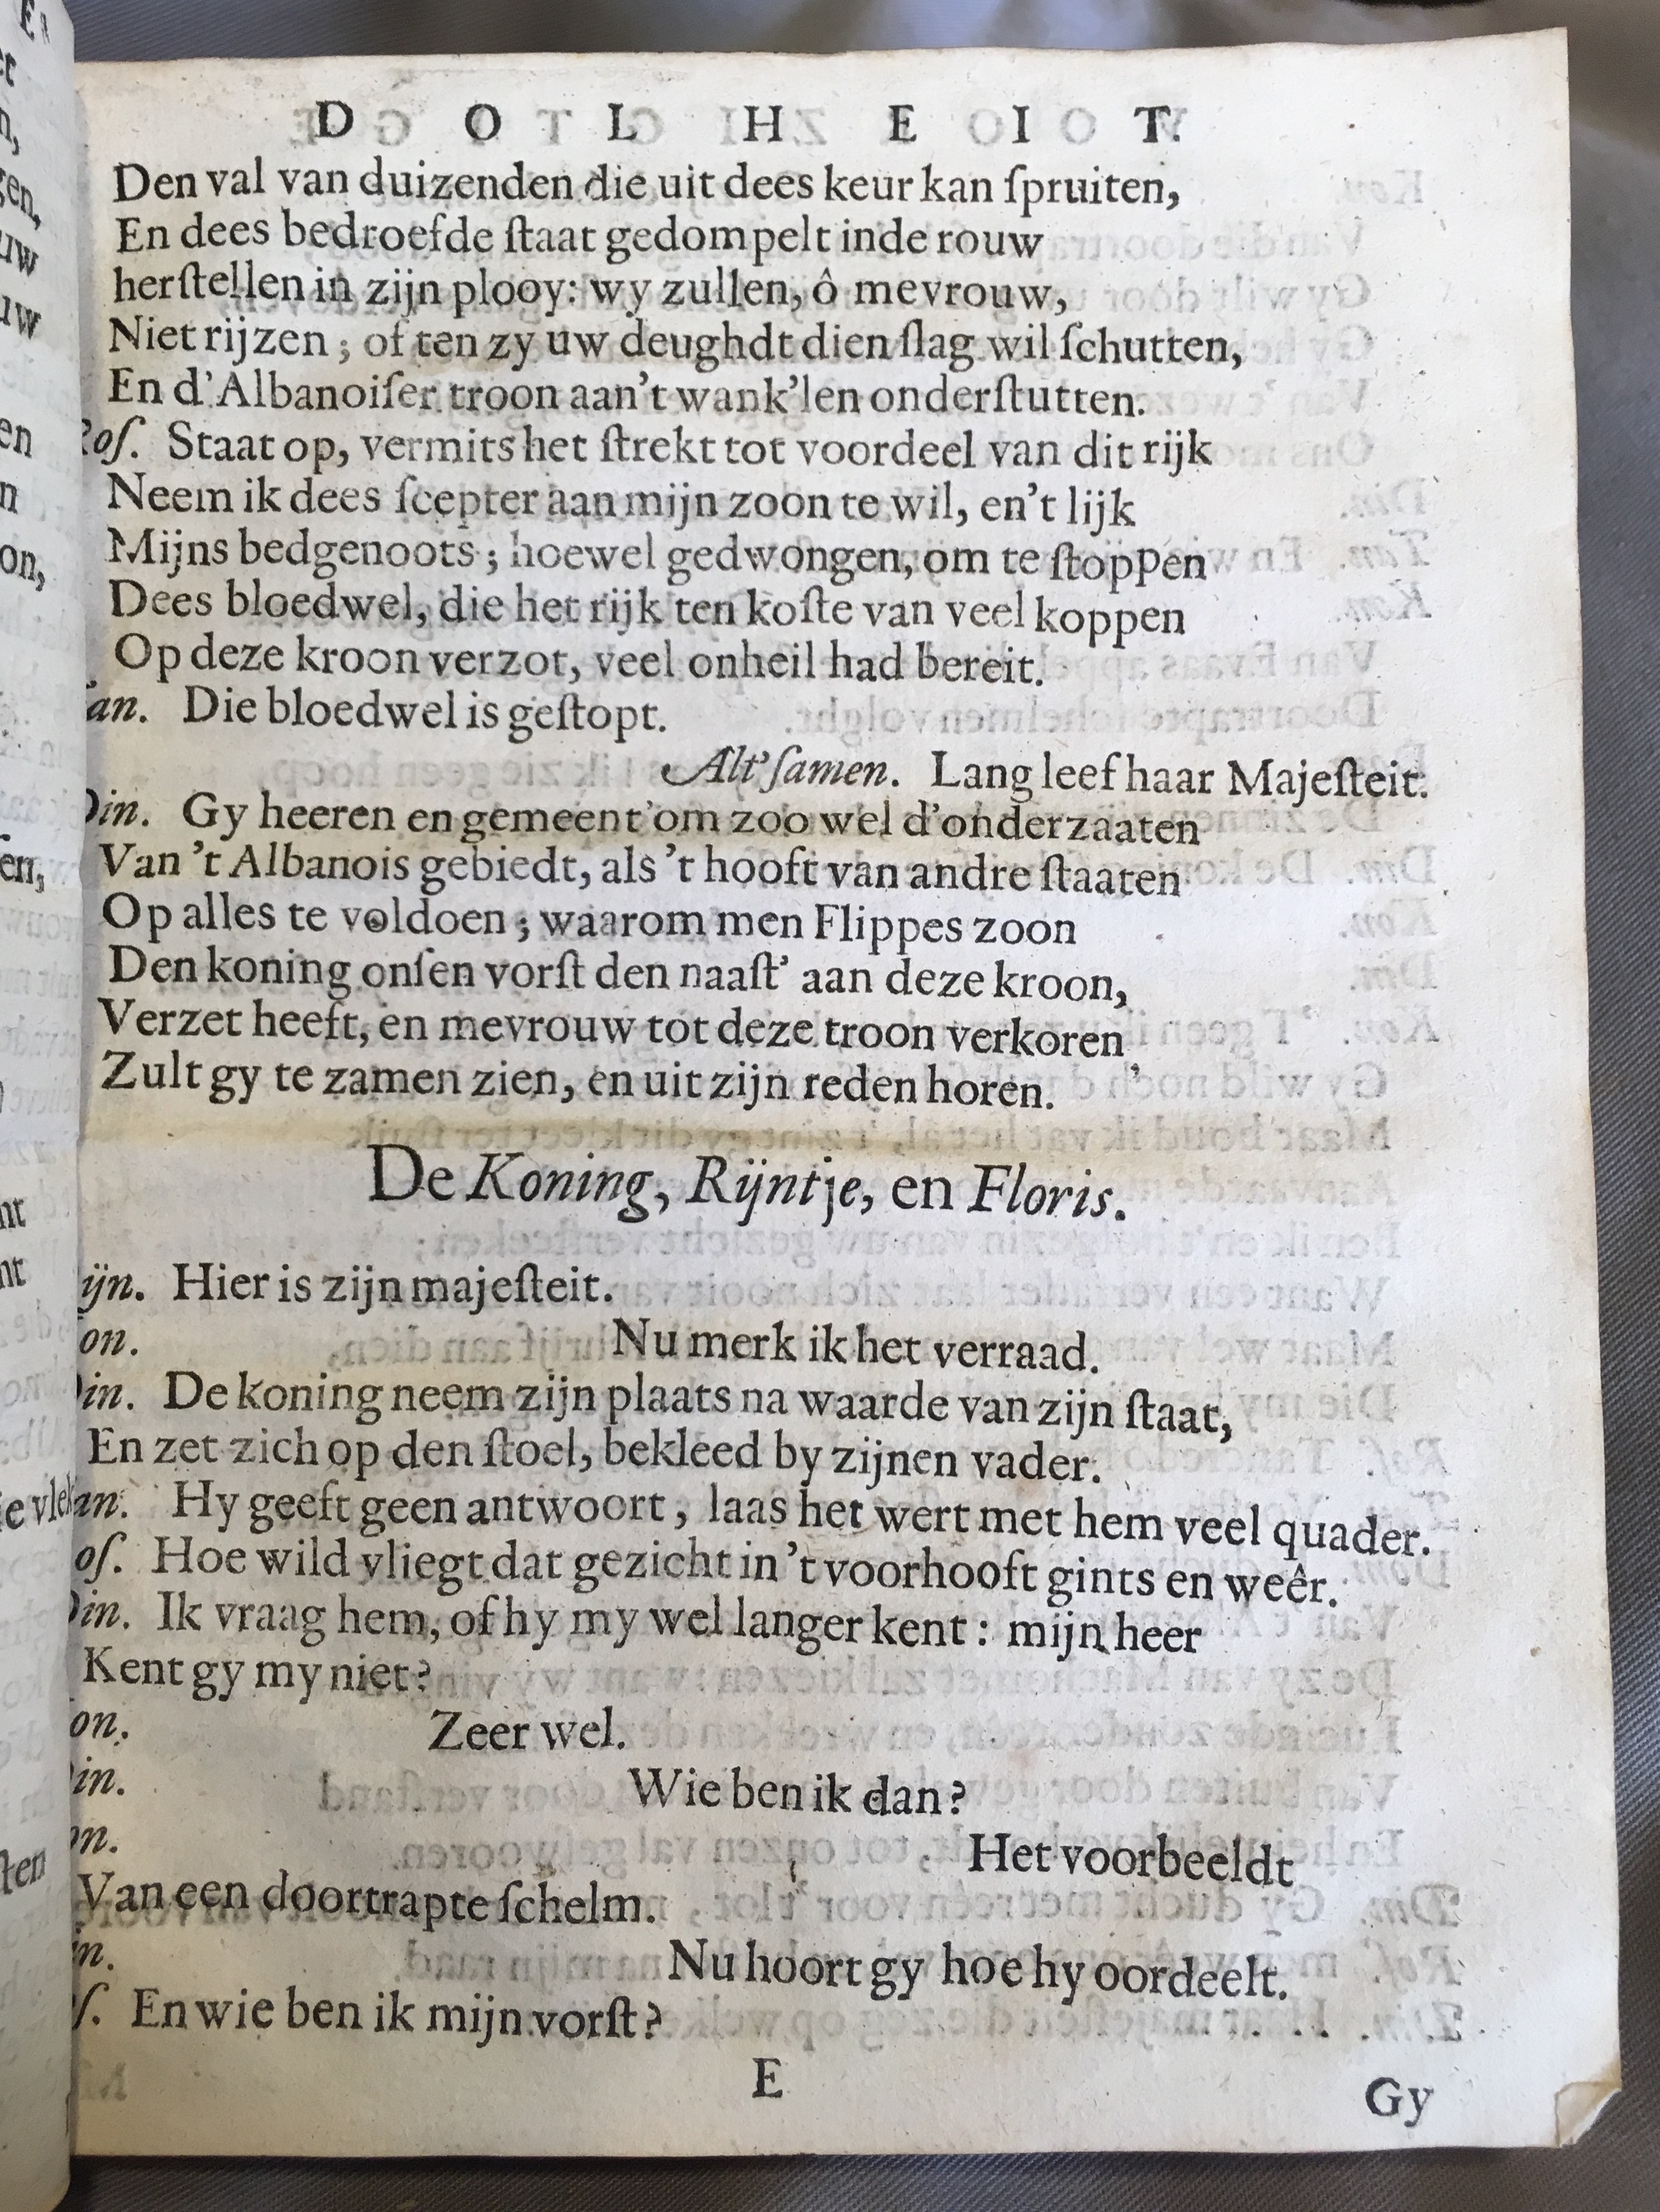 D O L H E I T.
Den val van duizenden die uit dees keur kan ſpruiten,
En dees bedroefde ſtaat gedompelt inde rouw
herſtellen in zijn plooy: wy zullen, ô mevrouw,
Niet rijzen; of ten zy uw deughdt dien ſlag wil ſchutten,
En d'Albanoiſer troon aan't wank'len onderſtutten.
Roſ. Staat op, vermits het ſtrekt tot voordeel van dit rijk
Neem ik dees ſcepter aan mijn zoon te wil, en't lijk
Mijns bedgenoots; hoewel gedwongen, om te ſtoppen
Dees bloedwel, die het rijk ten koſte van veel koppen
Op deze kroon verzot, veel onheil had bereit.
an. Die bloedwel is geſtopt.
Alt'ſamen. Lang leef haar Majeſteit.
Din. Gy heeren en gemeent'om zoo wel d'onderzaaten
Van 't Albanois gebiedt, als 't hooft van andre ſtaaten
Op alles te voldoen; waarom men Flippes zoon
Den koning onſen vorſt den naaſt' aan deze kroon,
Verzet heeft, en mevrouw tot deze troon verkoren,
Zult gy te zamen zien, en uit zijn reden horen.
De Koning, Rijntje, en Floris.
ijn. Hier is zijn majeſteit.
on. Nu merk ik het verraad.
Din. De koning neem zijn plaats na waarde van zijn ſtaat,
En zet zich op den ſtoel, bekleed by zijnen vader.
an. Hy geeft geen antwoort, laas het wert met hem veel quader.
oſ. Hoe wild vliegt dat gezicht in 't voorhooft gints en weêr.
Din. Ik vraag hem, of hy my wel langer kent: mijn heer
Kent gy my niet?
on. Zeer wel.
in. Wie ben ik dan?
on. Het voorbeeldt
Van een doortrapte ſchelm.
in. Nu hoort gy hoe hy oordeelt.
ſ. En wie ben ik mijn vorſt?
E
Gy